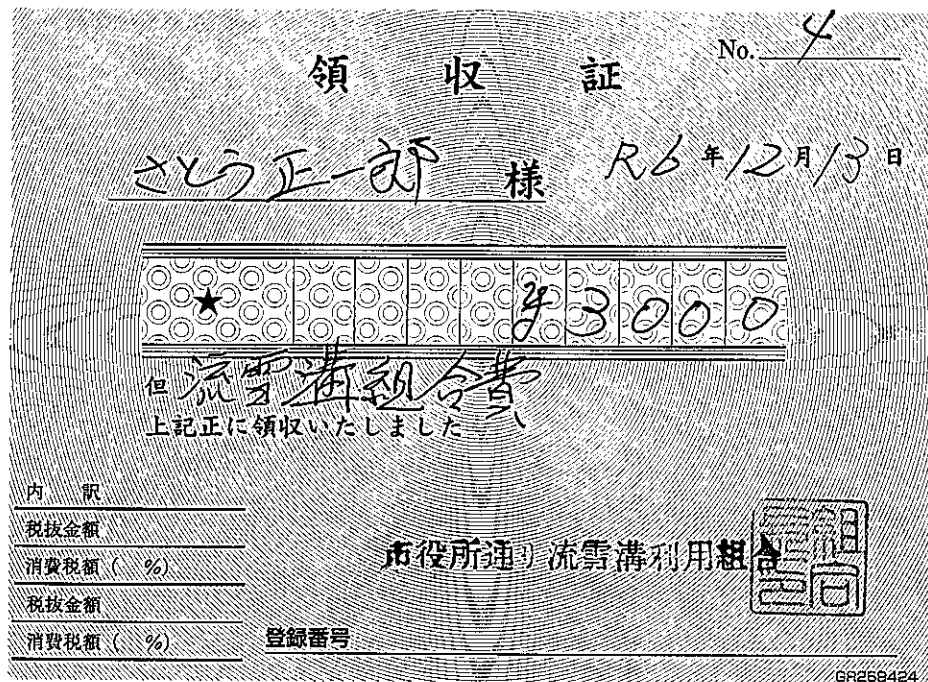 No. 4
領収証
さとう正一郎 様 R6年12月13日
★ ¥3000
但 流雪溝組合費
上記正に領収いたしました
内訳
税抜金額
消費税額( %)
税抜金額
消費税額( %)
市役所通り流雪溝利用組合
登録番号
GR259424